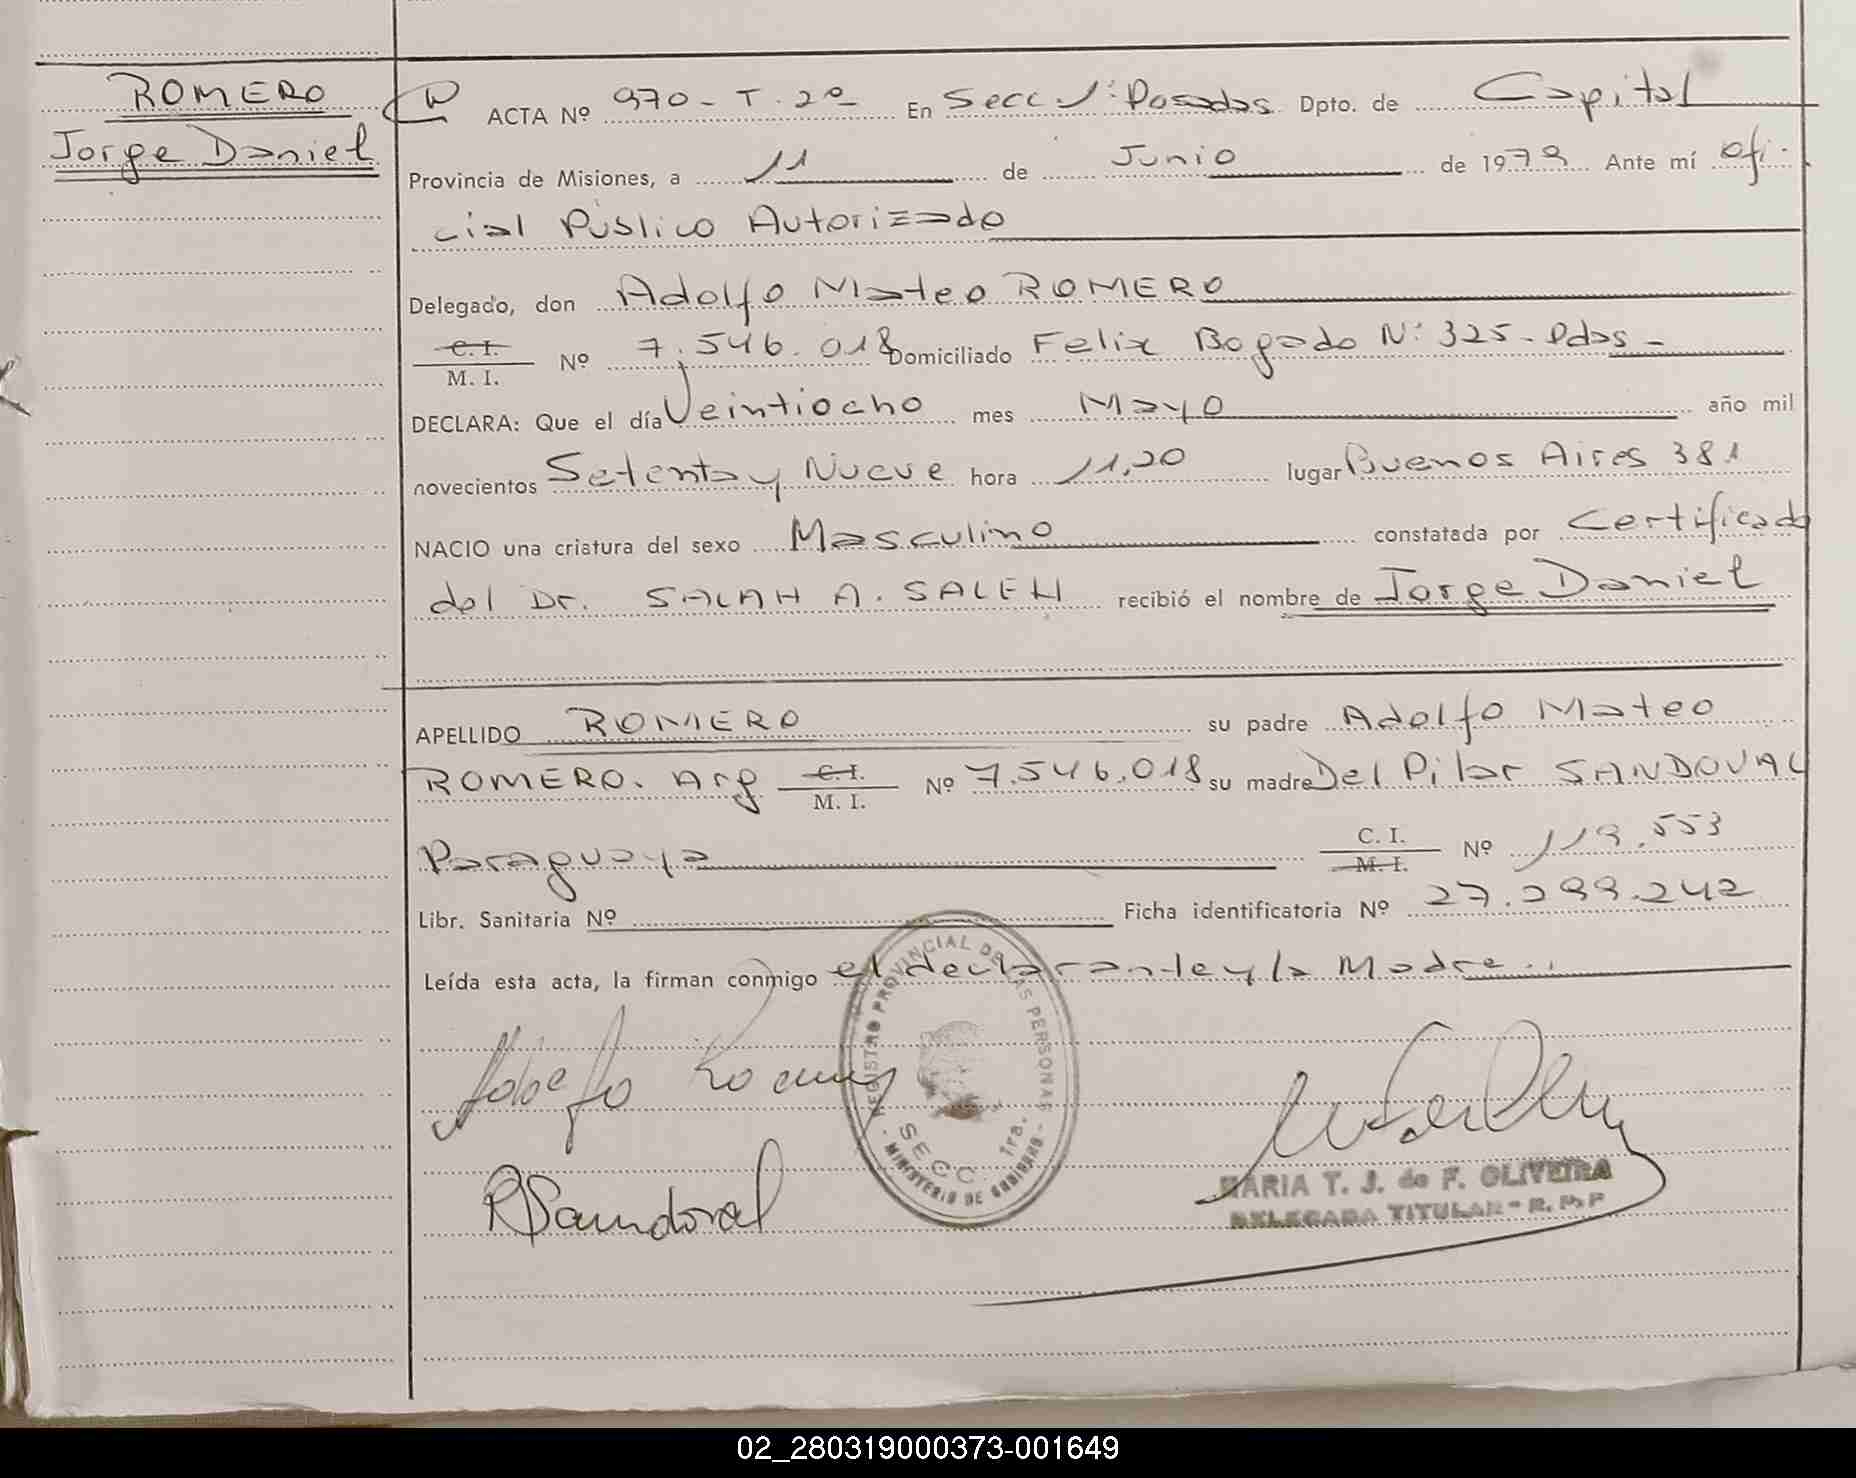 ROMERO
Jorge Daniel
ACTA Nº 970 - T. 2º En Secc 1ª: Posadas. Dpto. de Capital
Provincia de Misiones, a 11 de Junio de 1979 Ante mí Ofi-
cial Público Autorizado
Delegado, don Adolfo Mateo ROMERO
C. I.
M. I. Nº 7.546.018 Domiciliado Felix Bogado Nº 325 - Pdas -
DECLARA: Que el día Veintiocho mes Mayo año mil
novecientos Setenta y Nueve hora 11,20 lugar Buenos Aires 381
NACIO una criatura del sexo Masculino constatada por Certificado
del Dr. SALAH A. SALEH recibió el nombre de Jorge Daniel
APELLIDO ROMERO su padre Adolfo Mateo
ROMERO. Arg C. I. M. I. Nº 7.546.018 su madre Del Pilar SANDOVAL
Paraguaya C. I. M. I. Nº 119.553
Libr. Sanitaria Nº Ficha identificatoria Nº 27.299.242
Leída esta acta, la firman conmigo el declarante y la Madre..
REGISTRO PROVINCIAL DE LAS PERSONAS
SECC. 1ra.
- MINISTERIO DE GOBIERNO -
Adolfo Romero
R Sandoval
MARIA T. J. de F. OLIVEIRA
DELEGADA TITULAR - R. P. P
02_280319000373-001649